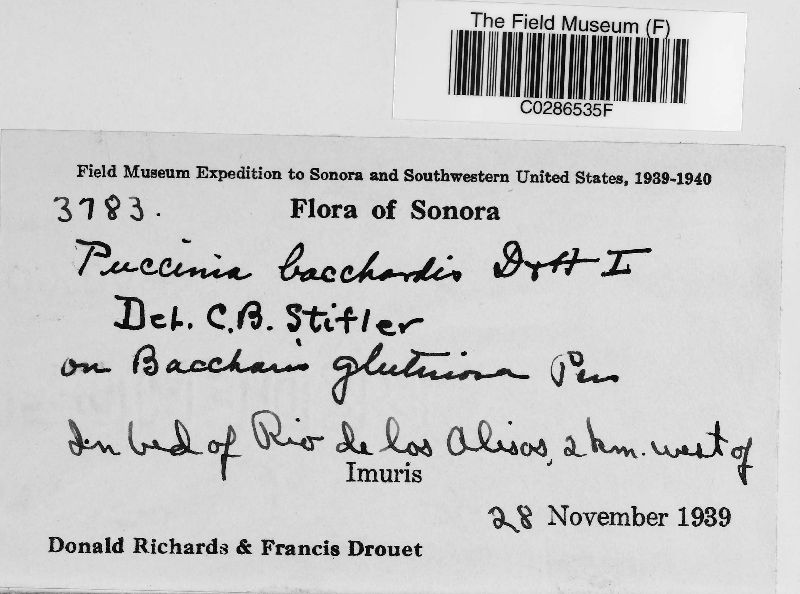 The Field Museum (F)
C0286535F
Field Museum Expedition to Sonora and Southwestern United States, 1939-1940
3783. Flora of Sonora
Puccinia bacchardis D & H I
Det. C.B. Stifler
on Baccharis glutinosa Pers
In bed of Rio de los Alisos, 2 km. west of
Imuris
28 November 1939
Donald Richards & Francis Drouet